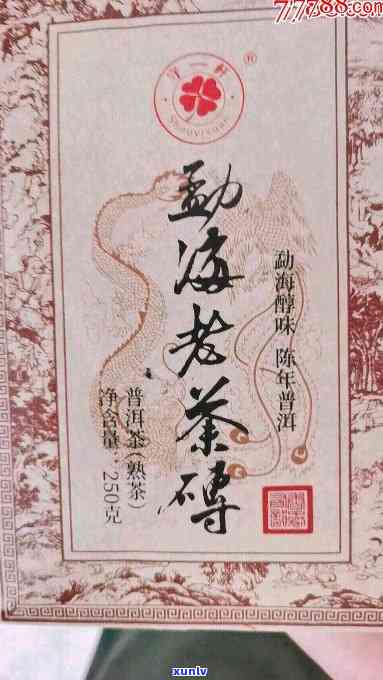 77788.com
守一轩
®
Shouyixuan
勐海老茶磚
勐海醇味 陈年普洱
普洱茶(熟茶)
净含量:250克
xunlv